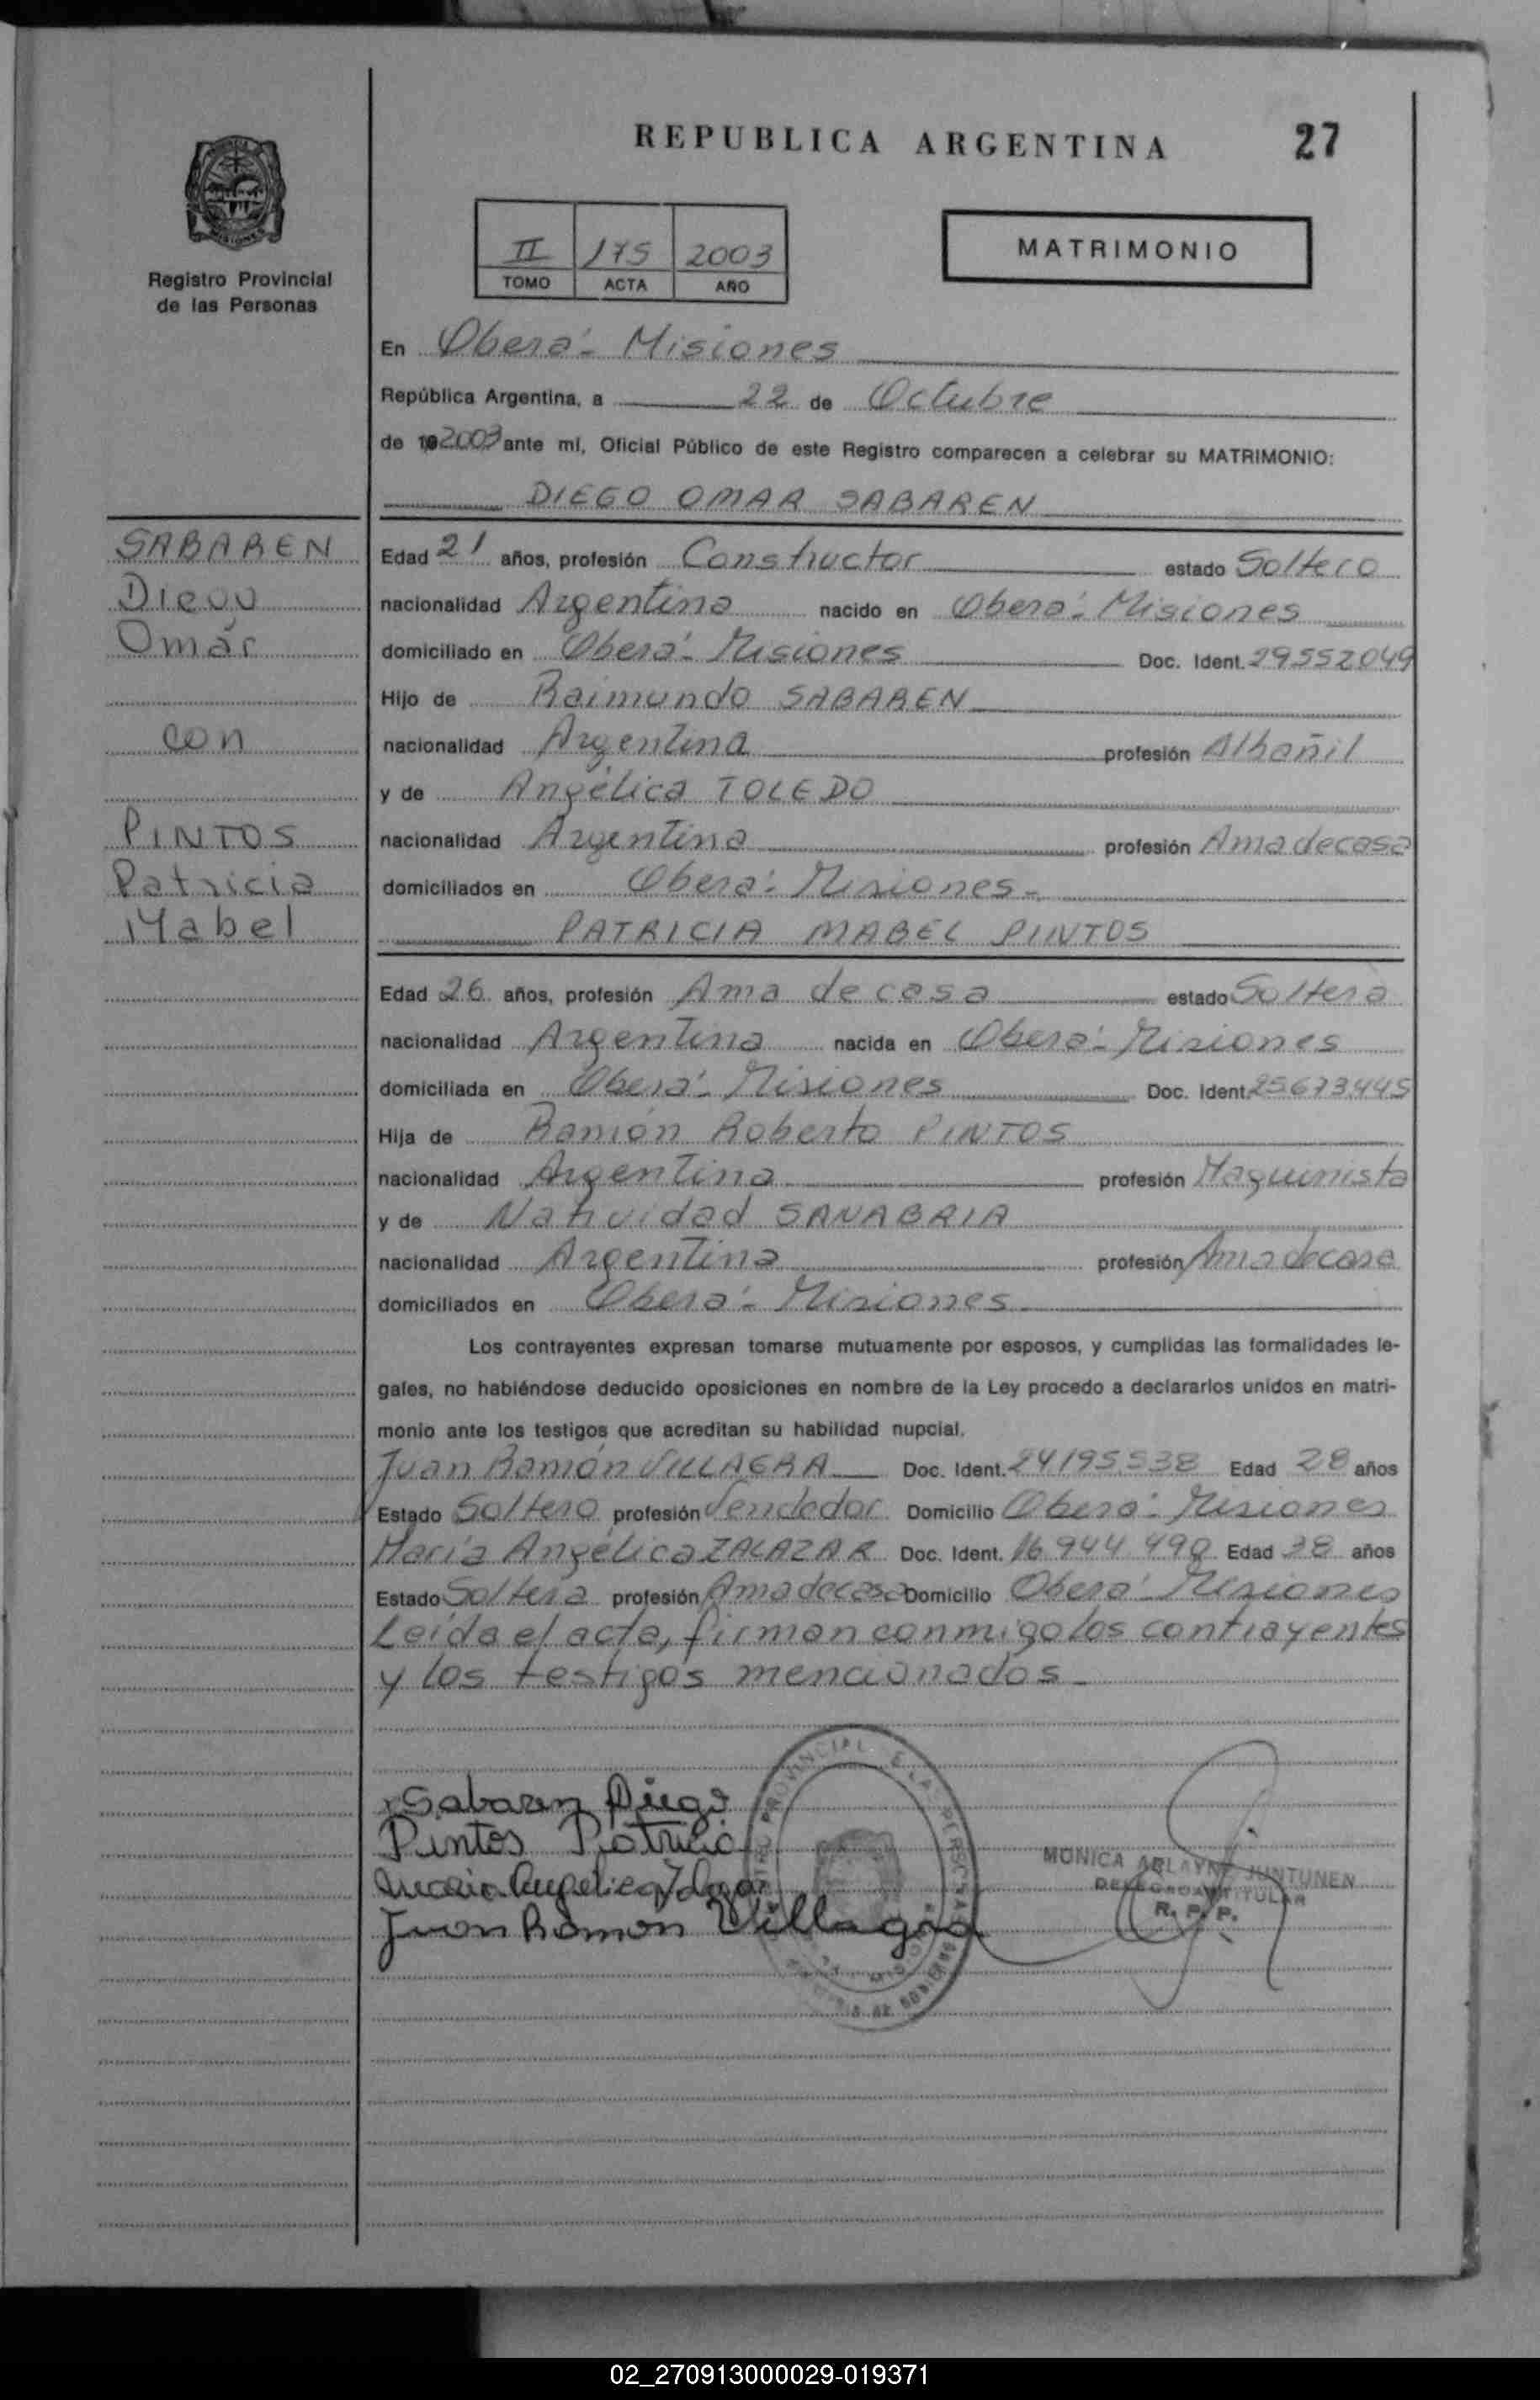 REPUBLICA ARGENTINA
27
Registro Provincial
de las Personas
II 175 2003
TOMO ACTA AÑO
MATRIMONIO
En Oberá - Misiones
República Argentina, a 22 de Octubre
de 19 2003 ante mí, Oficial Público de este Registro comparecen a celebrar su MATRIMONIO:
DIEGO OMAR SABAREN
SABAREN
Diego
Omar
con
PINTOS
Patricia
Mabel
Edad 21 años, profesión Constructor estado Soltero
nacionalidad Argentina nacido en Oberá - Misiones
domiciliado en Oberá - Misiones Doc. Ident. 29552049
Hijo de Raimundo SABAREN
nacionalidad Argentina profesión Albañil
y de Angélica TOLEDO
nacionalidad Argentina profesión Ama de casa
domiciliados en Oberá - Misiones -
PATRICIA MABEL PINTOS
Edad 26 años, profesión Ama de casa estado Soltera
nacionalidad Argentina nacida en Oberá - Misiones
domiciliada en Oberá - Misiones Doc. Ident. 25673445
Hija de Ramón Roberto PINTOS
nacionalidad Argentina profesión Maquinista
y de Natividad SANABRIA
nacionalidad Argentina profesión Ama de casa
domiciliados en Oberá - Misiones
Los contrayentes expresan tomarse mutuamente por esposos, y cumplidas las formalidades le-
gales, no habiéndose deducido oposiciones en nombre de la Ley procedo a declararlos unidos en matri-
monio ante los testigos que acreditan su habilidad nupcial.
Juan Ramón VILLAGRA Doc. Ident. 24195538 Edad 28 años
Estado Soltero profesión Vendedor Domicilio Oberá - Misiones
María Angélica ZALAZAR Doc. Ident. 16.944.490 Edad 38 años
Estado Soltera profesión Ama de casa Domicilio Oberá - Misiones
Leída el acta, firman conmigo los contrayentes
y los testigos mencionados -
Sabaren Diego
Pintos Patricia
Maria Angelica
Juan Ramon Villagra
PROVINCIAL DE LAS PERSONAS
MONICA JUNTUNEN
TITULAR
R. P. P.
02_270913000029-019371